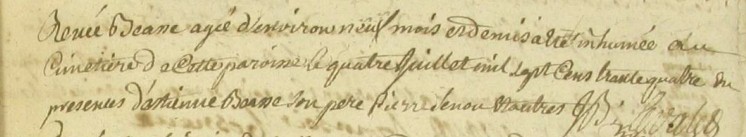 Renée Beane agée d'environ neuf mois et demis a été inhumée au
Cimetière de Cette paroisse le quatre Juillet mil sept Cens trante quatre en
presences d'astienne Beane son pere Pierre et autres